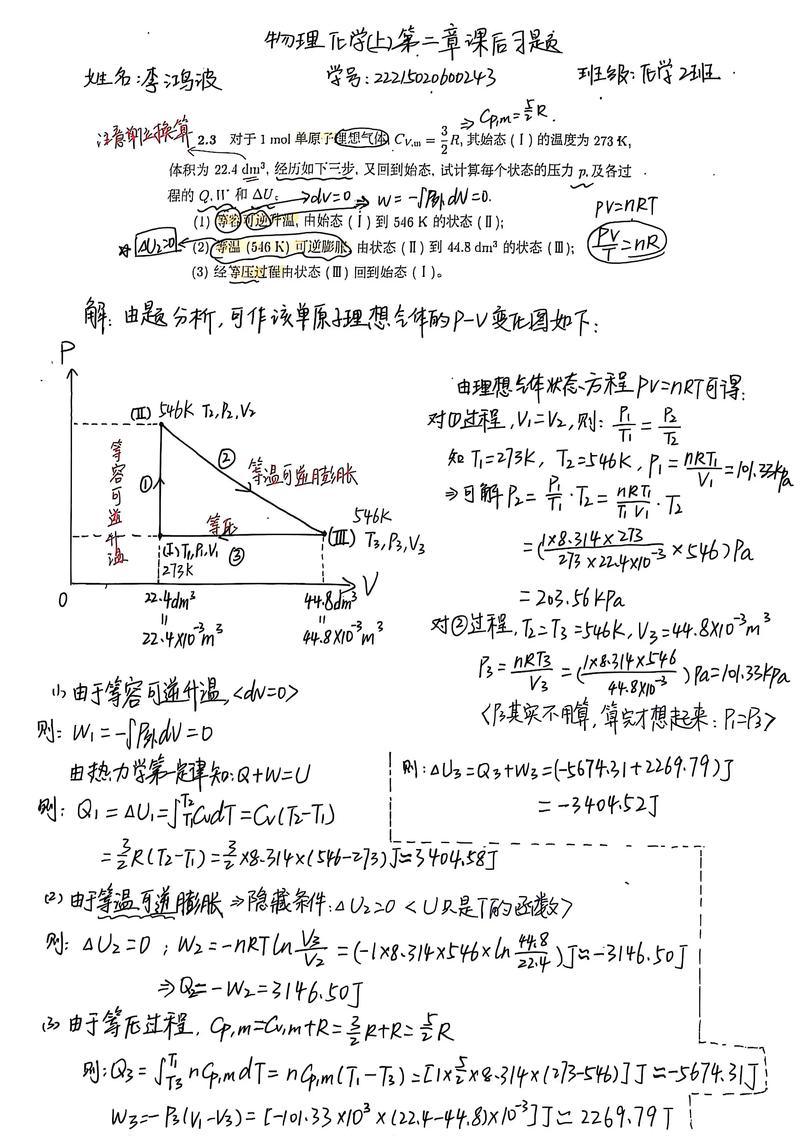 物理化学(上)第二章课后习题
姓名:李鸿波 学号:22215020600243 班级:化学2班
注意单位换算
⇒ Cp,m=5/2 R.
2.3 对于 1 mol 单原子理想气体, C_V,m = 3/2 R, 其始态 (Ⅰ) 的温度为 273 K,
体积为 22.4 dm³, 经历如下三步, 又回到始态, 试计算每个状态的压力 p, 及各过
程的 Q, W 和 ΔU。 →dV=0 ⇒ W=-∫P外dV=0.
(1) 等容可逆升温, 由始态 (Ⅰ) 到 546 K 的状态 (Ⅱ);
ΔU2=0 (2) 等温 (546 K) 可逆膨胀, 由状态 (Ⅱ) 到 44.8 dm³ 的状态 (Ⅲ);
(3) 经等压过程由状态 (Ⅲ) 回到始态 (Ⅰ)。
PV=nRT
PV/T=nR
解: 由题分析, 可作该单原子理想气体的P-V变化图如下:
P
(Ⅱ) 546K T2,P2,V2
等容可逆升温
①
②
等温可逆膨胀
等压
③
546K
(Ⅲ) T3,P3,V3
(Ⅰ) T1,P1,V1
273K
0
22.4dm³
44.8dm³
V
=
=
22.4×10⁻³m³
44.8×10⁻³m³
由理想气体状态方程PV=nRT可得:
对①过程, V1=V2, 则: P1/T1=P2/T2
知 T1=273K, T2=546K, P1=nRT1/V1=101.33kPa
⇒可解P2=P1/T1·T2=nRT1/T1V1·T2
=(1×8.314×273/273×22.4×10⁻³×546)Pa
=203.56kPa
对②过程, T2=T3=546K, V3=44.8×10⁻³m³
P3=nRT3/V3=(1×8.314×546/44.8×10⁻³)Pa=101.33kPa
<P3其实不用算, 算完才想起来: P1=P3>
(1) 由于等容可逆升温,<dV=0>
则: W1=-∫P外dV=0
由热力学第一定律知: Q+W=U
则: Q1=ΔU1=∫T1 T2 CvdT=Cv(T2-T1)
=3/2R(T2-T1)=3/2×8.314×(546-273)J≈3404.58J
(2) 由于等温可逆膨胀⇒隐藏条件: ΔU2=0 <U只是T的函数>
则: ΔU2=0; W2=-nRTln V3/V2=(-1×8.314×546×ln 44.8/22.4)J≈-3146.50J
⇒Q2=-W2=3146.50J
(3) 由于等压过程, Cp,m=Cv,m+R=3/2R+R=5/2R
则: Q3=∫T3 T1 nCp,mdT=nCp,m(T1-T3)=[1×5/2×8.314×(273-546)]J≈-5674.31J
W3=-P3(V1-V3)=[-101.33×10³×(22.4-44.8)×10⁻³]J≈2269.79J
则: ΔU3=Q3+W3=(-5674.31+2269.79)J
=-3404.52J